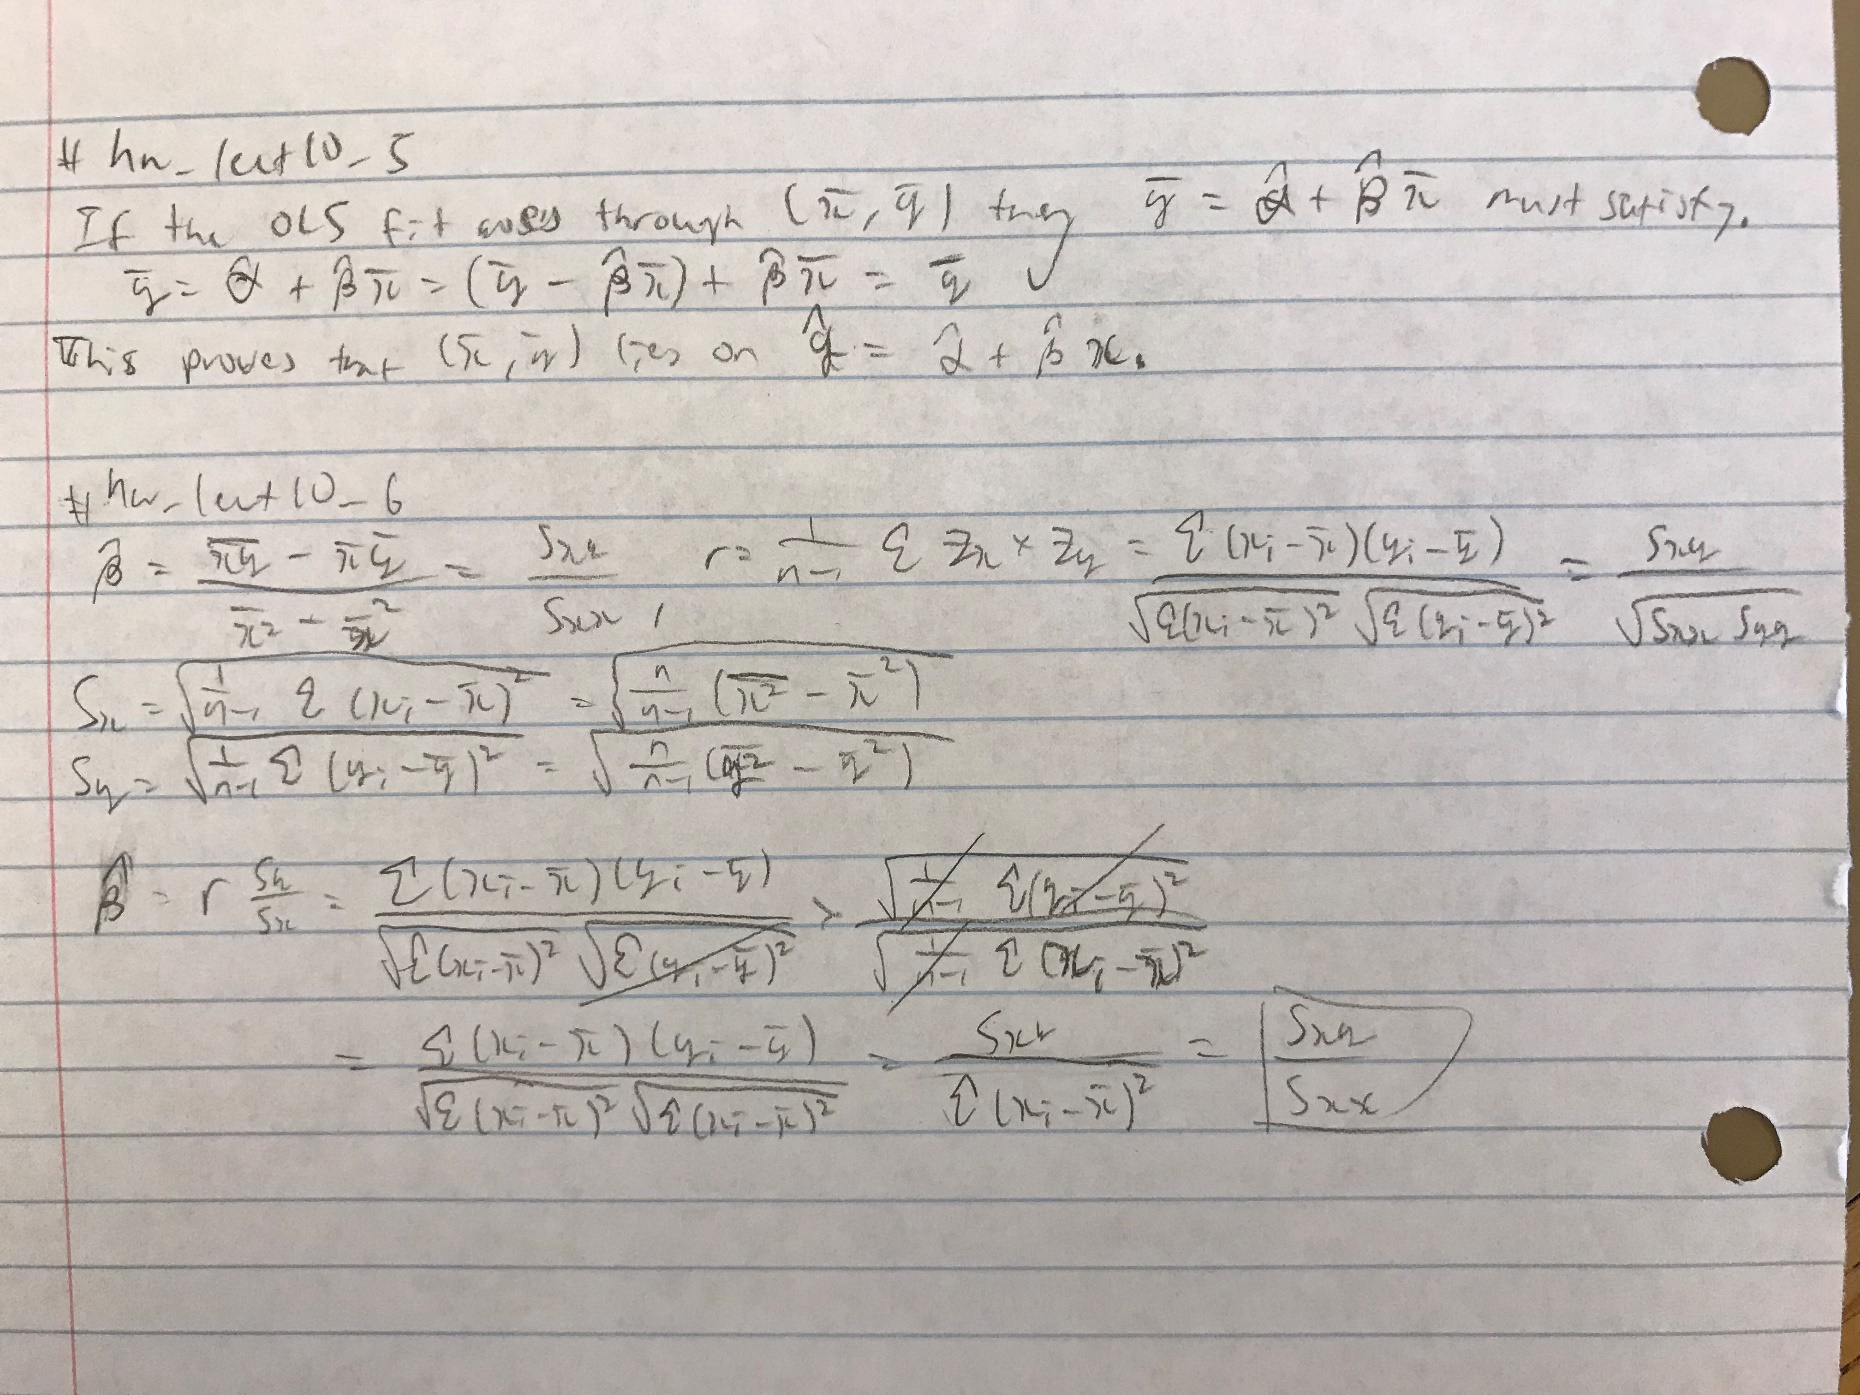 # hw_lect10_5
If the OLS fit goes through (x̄, ȳ) then ȳ = α̂ + β̂x̄ must satisfy.
ȳ = α̂ + β̂x̄ = (ȳ - β̂x̄) + β̂x̄ = ȳ ✓
This proves that (x̄, ȳ) lies on ŷ = α̂ + β̂x.
# hw_lect10_6
β̂ = (x̄y̅ - x̄ȳ)/(x̅²̅ - x̄²) = Sxy/Sxx , r = 1/(n-1) Σ Zx × Zy = Σ(xi - x̄)(yi - ȳ)/(√Σ(xi - x̄)² √Σ(yi - ȳ)²) = Sxy/√(Sxx Syy)
Sx = √(1/(n-1) Σ(xi - x̄)²) = √(n/(n-1) (x̅²̅ - x̄²))
Sy = √(1/(n-1) Σ(yi - ȳ)²) = √(n/(n-1) (y̅²̅ - ȳ²))
β̂ = r Sy/Sx = Σ(xi - x̄)(yi - ȳ)/(√Σ(xi - x̄)² √Σ(yi - ȳ)²) × √(1/(n-1) Σ(yi - ȳ)²)/√(1/(n-1) Σ(xi - x̄)²)
= Σ(xi - x̄)(yi - ȳ)/(√Σ(xi - x̄)² √Σ(xi - x̄)²) = Sxy/Σ(xi - x̄)² = Sxy/Sxx